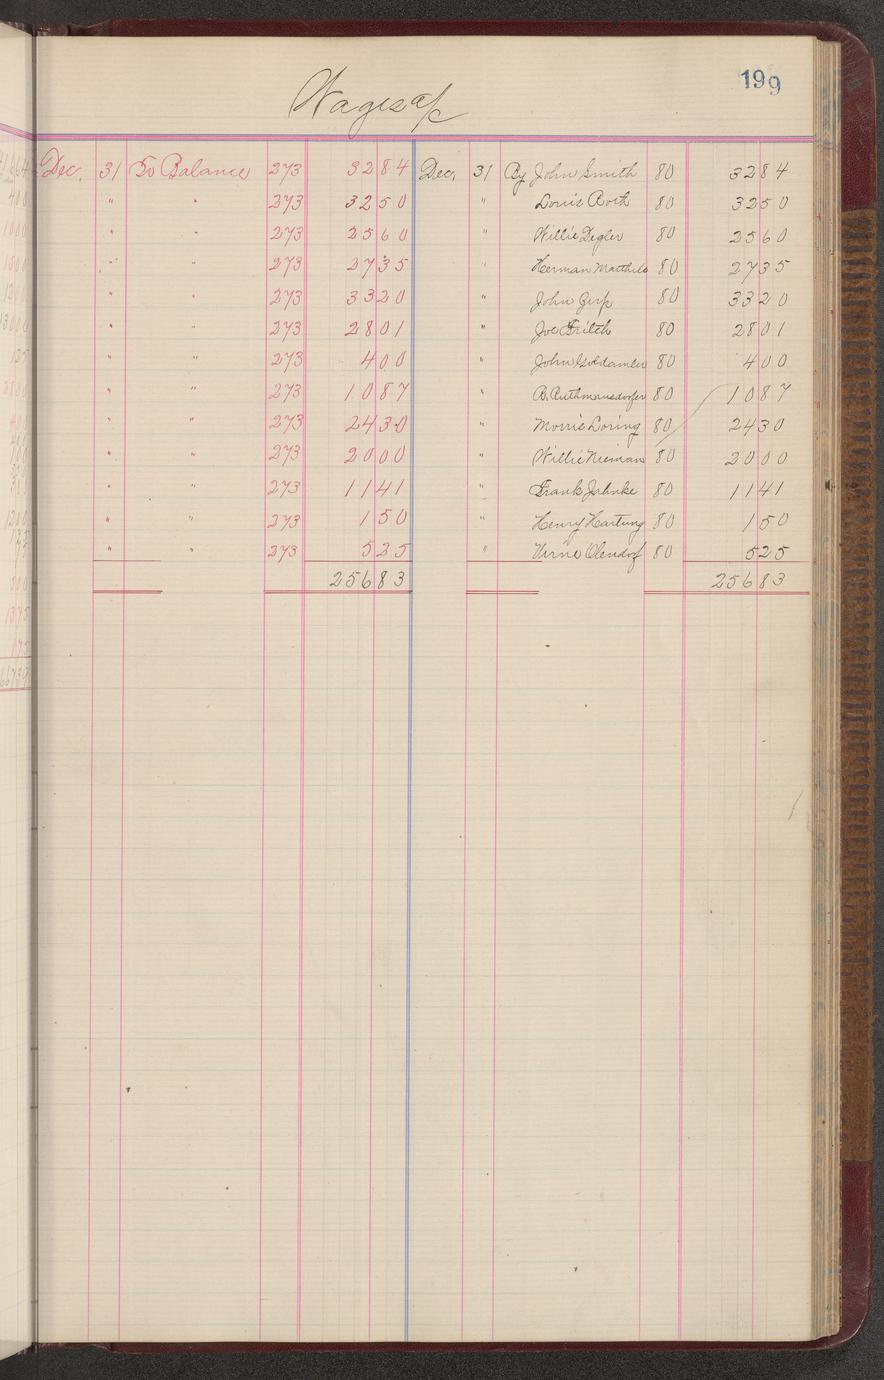 199
Wages a/c
Dec. 31 To Balance 273 32 84 Dec. 31 By John Smith 80 32 84
" " 273 32 50 " Louis Roth 80 32 50
" " 273 25 60 " Willie Degler 80 25 60
" " 273 27 35 " Herman 80 27 35
" " 273 33 20 " John 80 33 20
" " 273 28 01 " Joe Fritch 80 28 01
" " 273 4 00 " John 80 4 00
" " 273 10 87 " 80 10 87
" " 273 24 30 " Morris Loring 80 24 30
" " 273 20 00 " Willie Nieman 80 20 00
" " 273 11 41 " Frank Jahnke 80 11 41
" " 273 1 50 " Henry Hartung 80 1 50
" " 273 5 25 " Olendorf 80 5 25
256 83 256 83